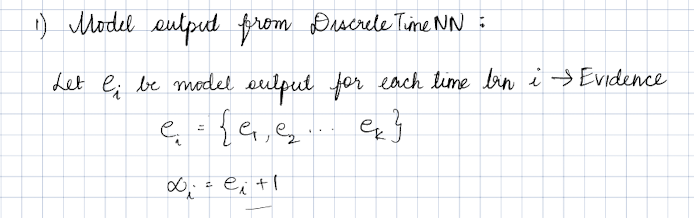 1) Model output from DiscreteTimeNN :
Let e_i be model output for each time bin i → Evidence
e_i = {e_1, e_2 ... e_k}
α_i = e_i + 1